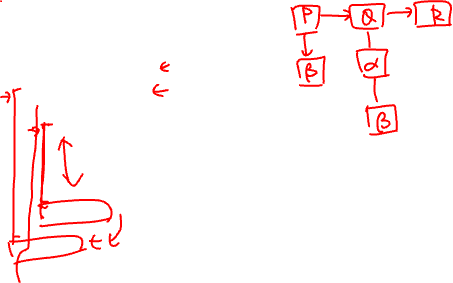 P Q R
β α
β